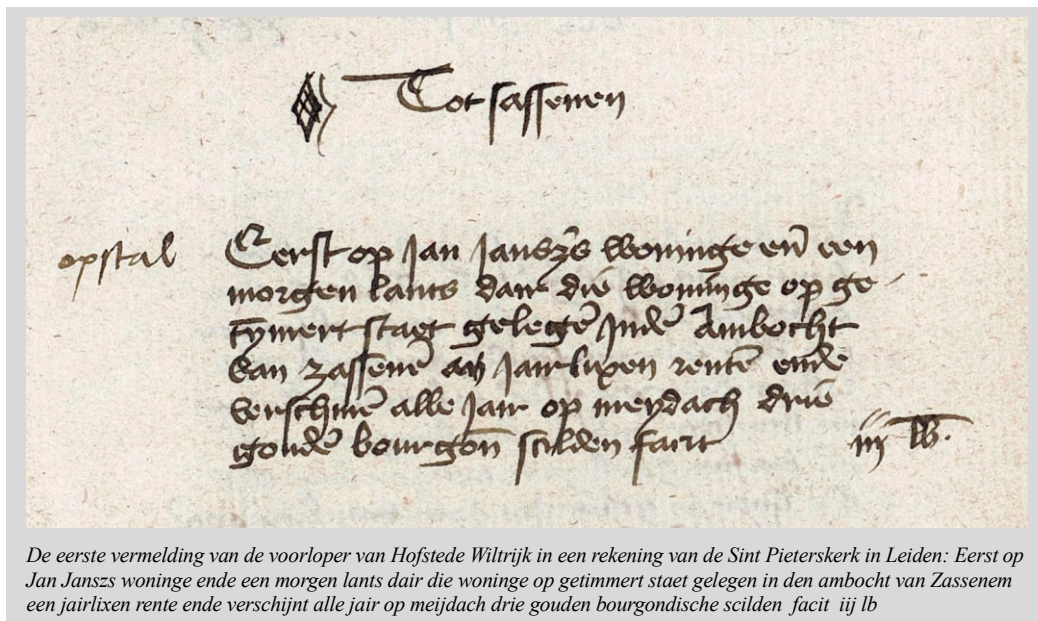 Tot sassenen
opstal
Eerst op Jan Janszs woninge en̄ een
morgen lants dair die woninge op ge
tȳmert staet gelegē Jndē Ambocht
van zassenē an Jairlixen rentē ende
verschinē alle Jair op meydach drie
goudē bourgon̄ scilden facit iij lb.
De eerste vermelding van de voorloper van Hofstede Wiltrijk in een rekening van de Sint Pieterskerk in Leiden: Eerst op
Jan Janszs woninge ende een morgen lants dair die woninge op getimmert staet gelegen in den ambocht van Zassenem
een jairlixen rente ende verschijnt alle jair op meijdach drie gouden bourgondische scilden facit iij lb